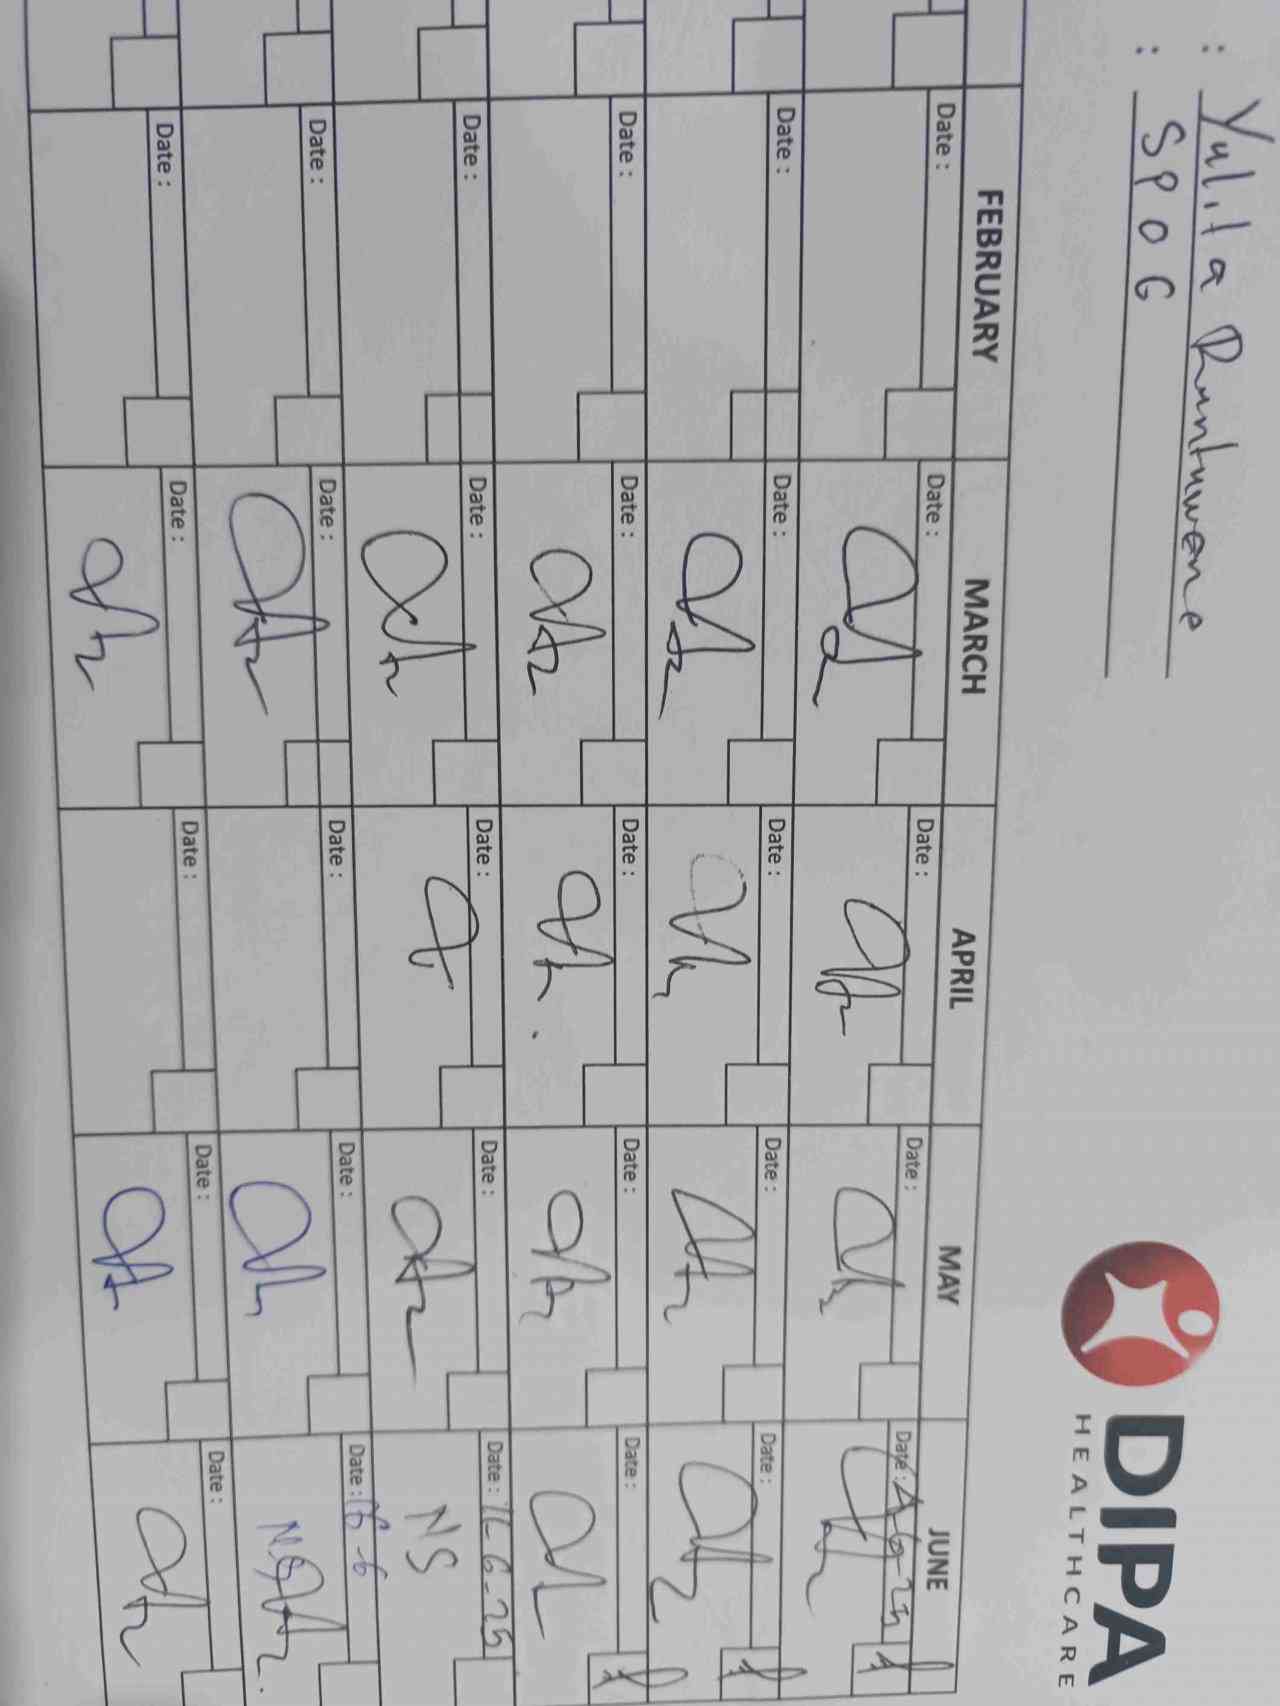 : Yulita Runtuwene
: SPOG
DIPA
HEALTHCARE
FEBRUARY MARCH APRIL MAY JUNE
Date : Date : Date : Date : Date :
Date : Date : Date : Date : Date :
Date : Date : Date : Date : Date :
Date : Date : Date : Date : Date :
NS
Date : Date : Date : Date : Date :
Date : Date : Date : Date : Date :